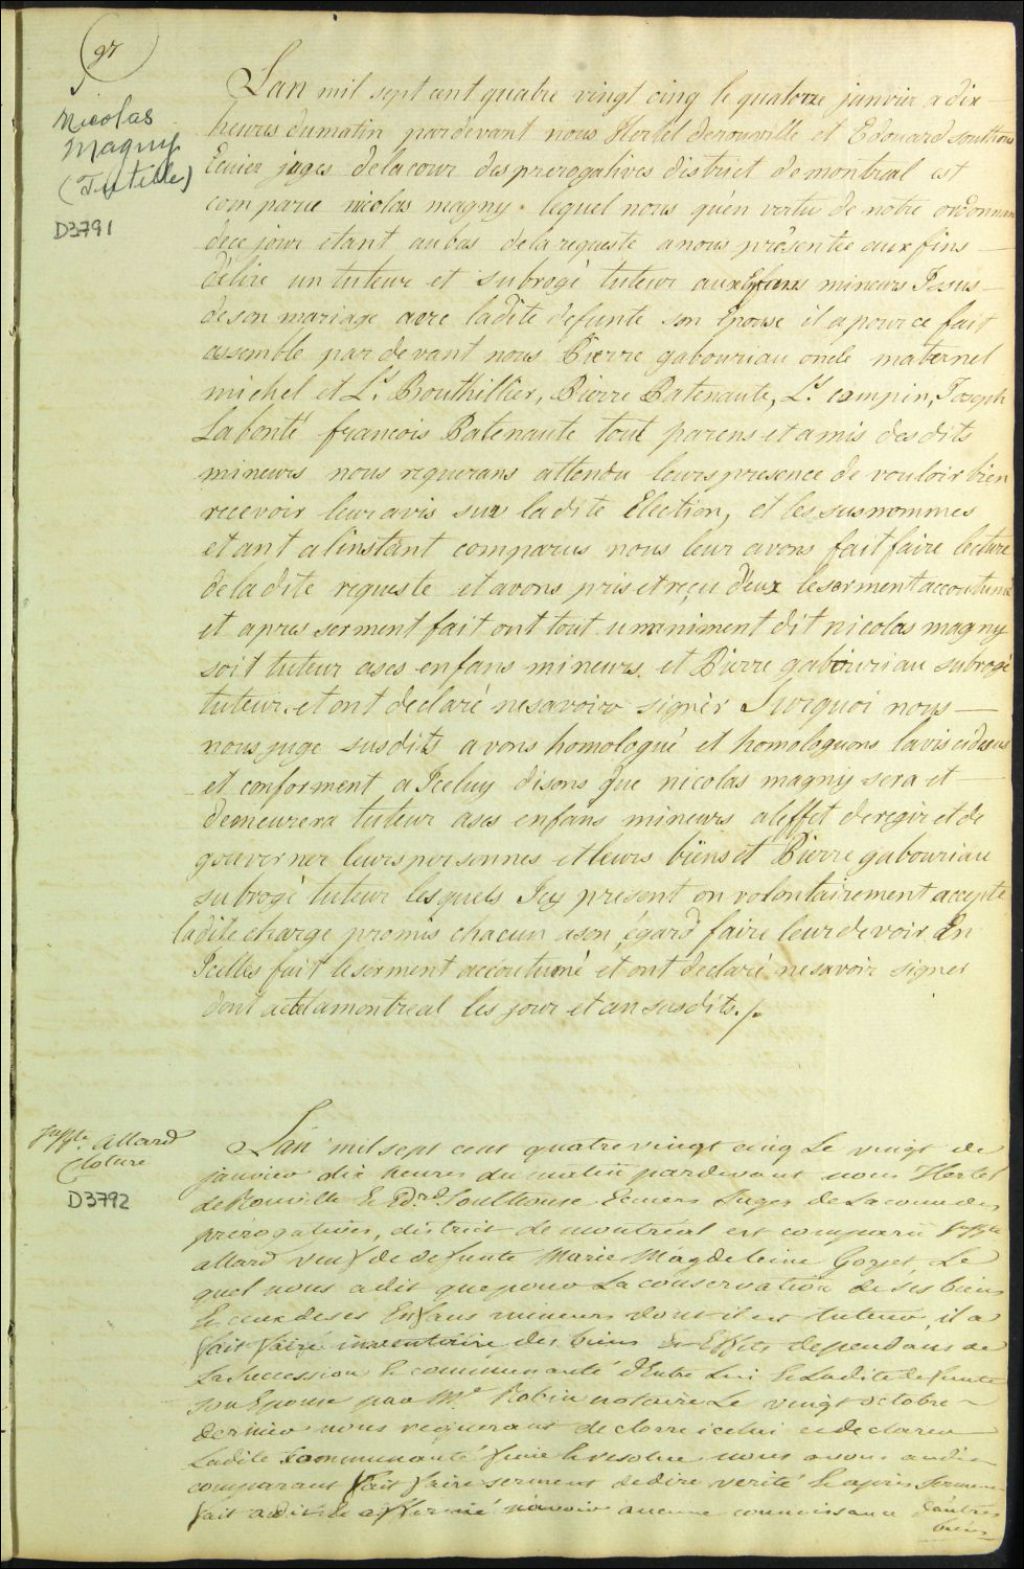 97
Nicolas
Magny
(Tutelle)
D3791
Lan mil sept cent quatre vingt cinq le quatorze janvier a dix
heures dumatin pardevant nous Hertel derouville et Edouard southous
Ecuier juges delacour desprerogatives district de montreal est
comparue nicolas magny lequel nous qu'en vertu de notre ordonnan
dece jour etant aubas delarequeste anous présentée aux fins
d'elire un tuteur et subrogé tuteur aux Enfans mineurs Issus
deson mariage avec ladite defunte son Epouse il apource fait
assemblé par devant nous Pierre gabouriau oncle maternel
michel et Ls. Bouthillier, Pierre Patenaute, Ls. campin, Joseph
Labonté francois Patenaute tout parens et amis desdits
mineurs nous requerans attendu leurs presence de vouloir bien
recevoir leuravis sur ladite Election, et les susnommés
etant alinstant comparus nous leur avons fait faire lecture
deladite requeste et avons pris et reçu d'eux lesermentaccoutumé
et apres serment fait ont tout unaniment dit nicolas magny
soit tuteur ases enfans mineurs. et Pierre gabouriau subrogé
tuteur. et ont declaré nesavoir signér Surquoi nous
nous juge susdits avons homologué et homologuons lavis cidessus
et conforment a Iceluy disons que nicolas magny sera et
demeurera tuteur ases enfans mineurs aleffet deregir et de
gouverner leurspersonnes etleurs biens et Pierre gabouriau
subrogé tuteur lesquels Icy présent on volontairement accepté
ladite charge promis chacun ason égard faire leurdevoir En
Icelles fait leserment accoutumé et ont declaré nesavoir signer
dont acte amontreal les jour et an susdits./.
Jh Bte Allard
Cloture
D3792
Lan mil sept cent quatre vingt cinq Le vingt de
janvier dix heures du matin pardevant nous Hertel
deRouville & Edrd Southouse Ecuiers Juges de Lacour des
prérogatives, district de montréal est comparu
allard veuf de defunte Marie Magdeleine Goyet, Le
quel nous a dit que pour La conservation de ses biens
& ceux de ses Enfans mineurs dont il est tuteur, il a
fait faire inventaire des biens & Effets dependans de
La Succession & communauté d'Entre Lui & Ladite defunte
son Epouse par Me. Robin notaire Le vingt octobre
dernier nous requerant de clorre icelui & declarer
Ladite Communauté finie & resolue nous avons audit
comparant fait faire serment de dire verité & après serment
fait a dit & affirmé n'avoir aucune connoissance d'autres
biens